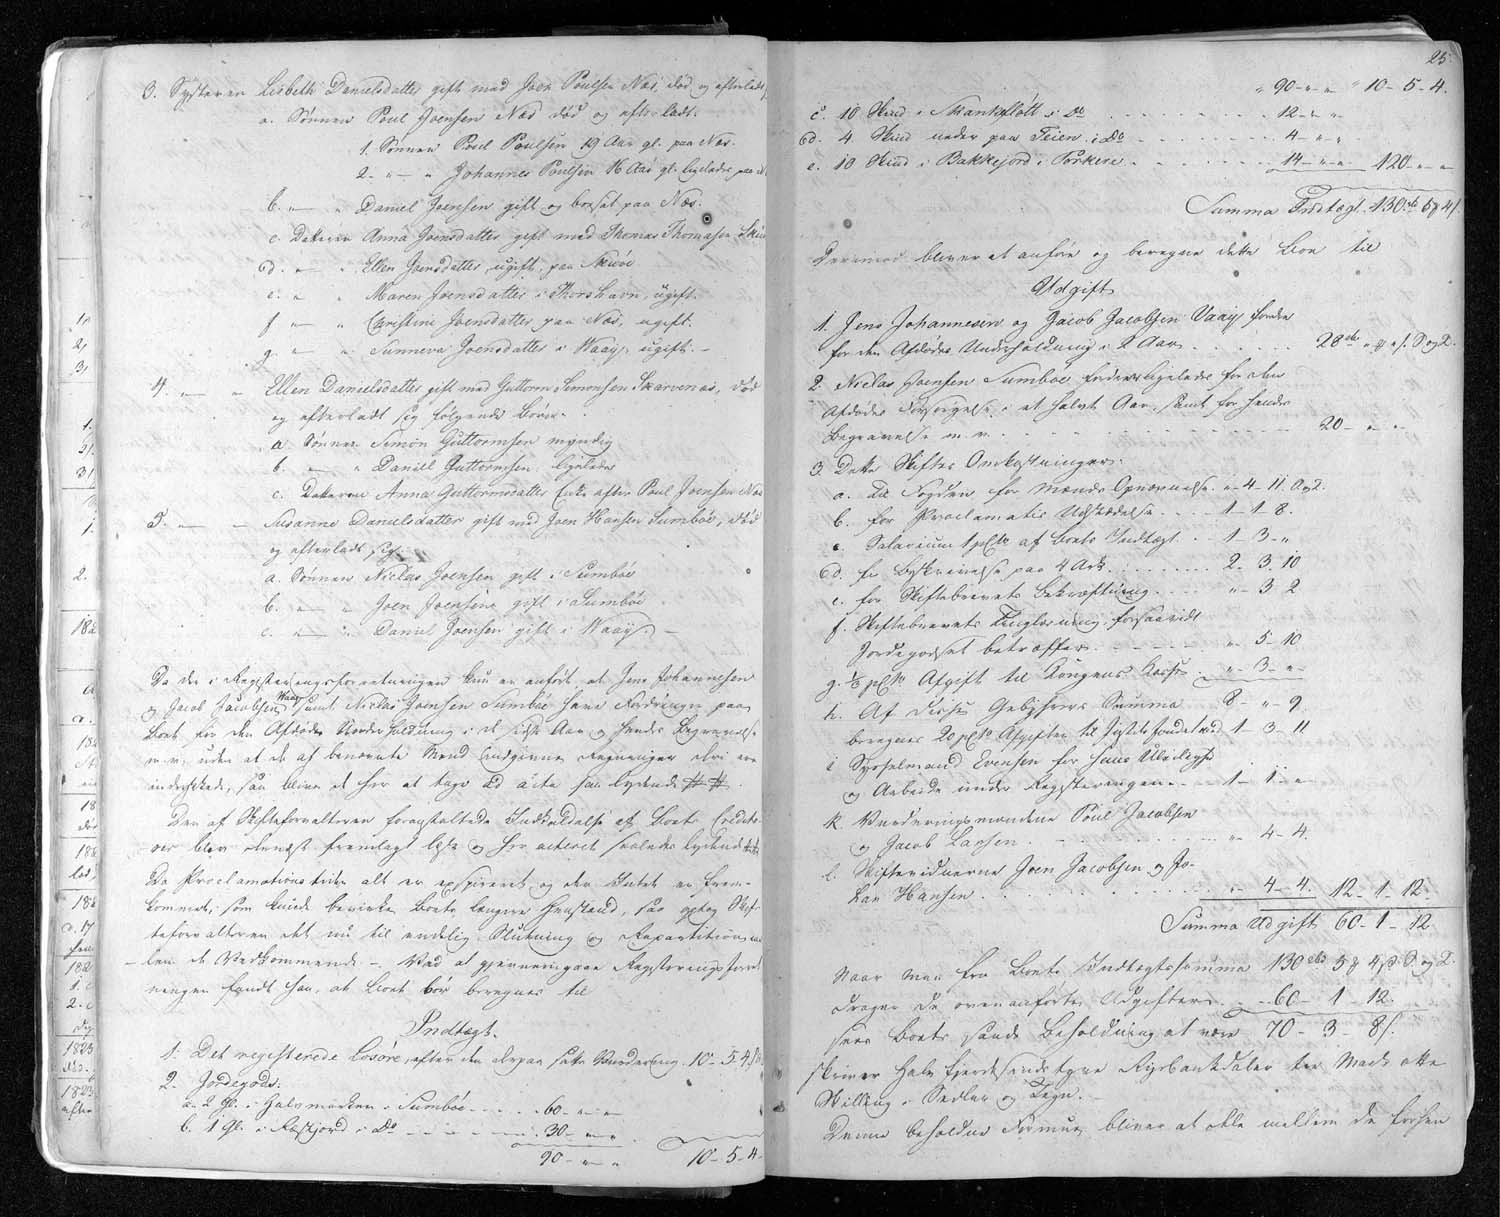 3. Systeren Lisbeth Danielsdatter gift med Joen Poulsen Næs, død og efterladt
a. Sønnen Poul Joensen Næs død og efterladt.
1. Sønnen Poul Poulsen 19 Aar gl. paa Næs.
2. — " Johannes Poulsen 16 Aar gl. ligeledes paa
b. — " Daniel Joensen gift og bosat paa Næs.
c. Datteren Anna Joensdatter gift med Thomas Thomasen
d. — " Ellen Joensdatter, ugift, paa
e. " " Maren Joensdatter i Thorshavn, ugift.
f — " Christine Joensdatter paa Næs, ugift.
g. — " Sunneva Joensdatter i Waaÿ, ugift. —
4. — " Ellen Danielsdatter gift med Guttorm Simonsen Skarvenæs, død
og efterladt sig følgende børn.
a Sønnen Simon Guttormsen myndig
b. — " Daniel Guttormsen, ligeledes
c. Datteren Anna Guttormsdatter Enke efter Poul Joensen Næs
5. — — Susanne Danielsdatter gift med Joen Hansen Sumbøe, død
og efterladt sig.
a. Sønnen Niclas Joensen gift i Sumbøe
b. — " Joen Joensen gift i Sumbøe
c. — " Daniel Joensen gift i Waaÿ. —
Da der i Registreringsforretningen kun er anført at Jens Johannesen
og Jacob Jacobsen Waaÿ samt Niclas Joensen Sumbøe have Fordringer paa
Boet for den Afdødes Underholdning i de sidste Aar og hendes Begravelse
m.v. uden at de af benævnte Mænd indgivne Regninger deri ere
indrykkede, saa bliver de her at tage ad acta saa lydende ## ##.
Den af Skifteforvalteren foranstaltede Indkaldelse af Boets Credito-
rer blev dernæst fremlagt læst og her acteret saaledes lydende
Da Proclamationstiden alt er expireret og der Intet er frem-
kommet, som kunde bevirke Boets længere Henstand, saa optog Skif-
teforvalteren det nu til endelig Slutning og Repartition
lem de Vedkommende. Ved at gjennemgaae Registreringsforret
ningen fandt han, at Boet bør beregnes til
Indtægt.
1. Det registrerede Løsøre, efter den derpaa satte Vurdering. 10-5-4
2. Jordegods:
a. 2 Gl. i Halvmørken i Sumbøe . . . . 60 - " - "
b. 1 Gl. i i Do — — — 30 - " - "
90 - " - " 10-5-4
25.
" 90 - " - " " 10-5-4.
c. 10 Skind i i Do . . . . . 12 - " - "
d. 4 Skind neder paa Teien i Do . . . . 4 - " - "
e. 10 Skind i Bakkejord i Porkere . . . . 14 - " - " 120 - " - "
Summa Indtægt 130 5 4
Derimod bliver at anføre og beregne dette Boe til
Udgift
1. Jens Johannesen og Jacob Jacobsen Vaaÿ fordre
for den Afdødes Underholdning i 2 Aar . . . . . 28
2. Niclas Joensen Sumbøe fordrer ligeledes for den
Afdødes Forsørgelse i et halvt Aar, samt for hendes
Begravelse m. v. . . . . . . 20 - " - "
3. Dette Skiftes Omkostninger:
a. Til Fogden for Mænds Opnævnelse. " - 4 - 11.
b. for Proclamatis Udstædelse . . . . 1 - 1 - 8.
c. Salarium 1 pCto af Boets Indtægt . . 1 - 3 - "
d. for Beskrivelse paa 4 Ark . . . . . 2. 3. 10
e. for Skiftebrevets Bekræftning . . . . " - 3. 2
f. Skiftebrevets Tinglæsning, forsaavidt
Jordegodset betræffer . . . . . " - 5 - 10
g. pCto Afgift til Kongens Kasse . " - 3 - "
h. Af disse Gebÿhrers Summa 8 - " - 9.
beregnes 20 pCto Afgiften til Justits Fondet med 1 - 3 - 11
i Sysselmand Evensen for hans Uleilighed
og Arbeide under Registreringen . . . 1 - 1 - "
k. Vurderingsmændene Poul Jacobsen
og Jacob Larsen . . . . . . " - 4 - 4.
l. Skiftevidnerne Joen Jacobsen og Jo-
han Hansen . . . . . " - 4 - 4. 12 - 1 - 12.
Summa Udgift 60 - 1 - 12
Naar man fra Boets Indtægtssumma 130 5 4
drager de ovenanførte Udgifter . . 60 - 1 - 12.
sees Boets sande Beholdning at være 70 - 3 - 8
skriver Halvfjerdsindstyve Rigsbankdaler tre Mark otte
Skilling i Sedler og Tegn. —
Denne beholdne Formue bliver at dele mellem de forhen